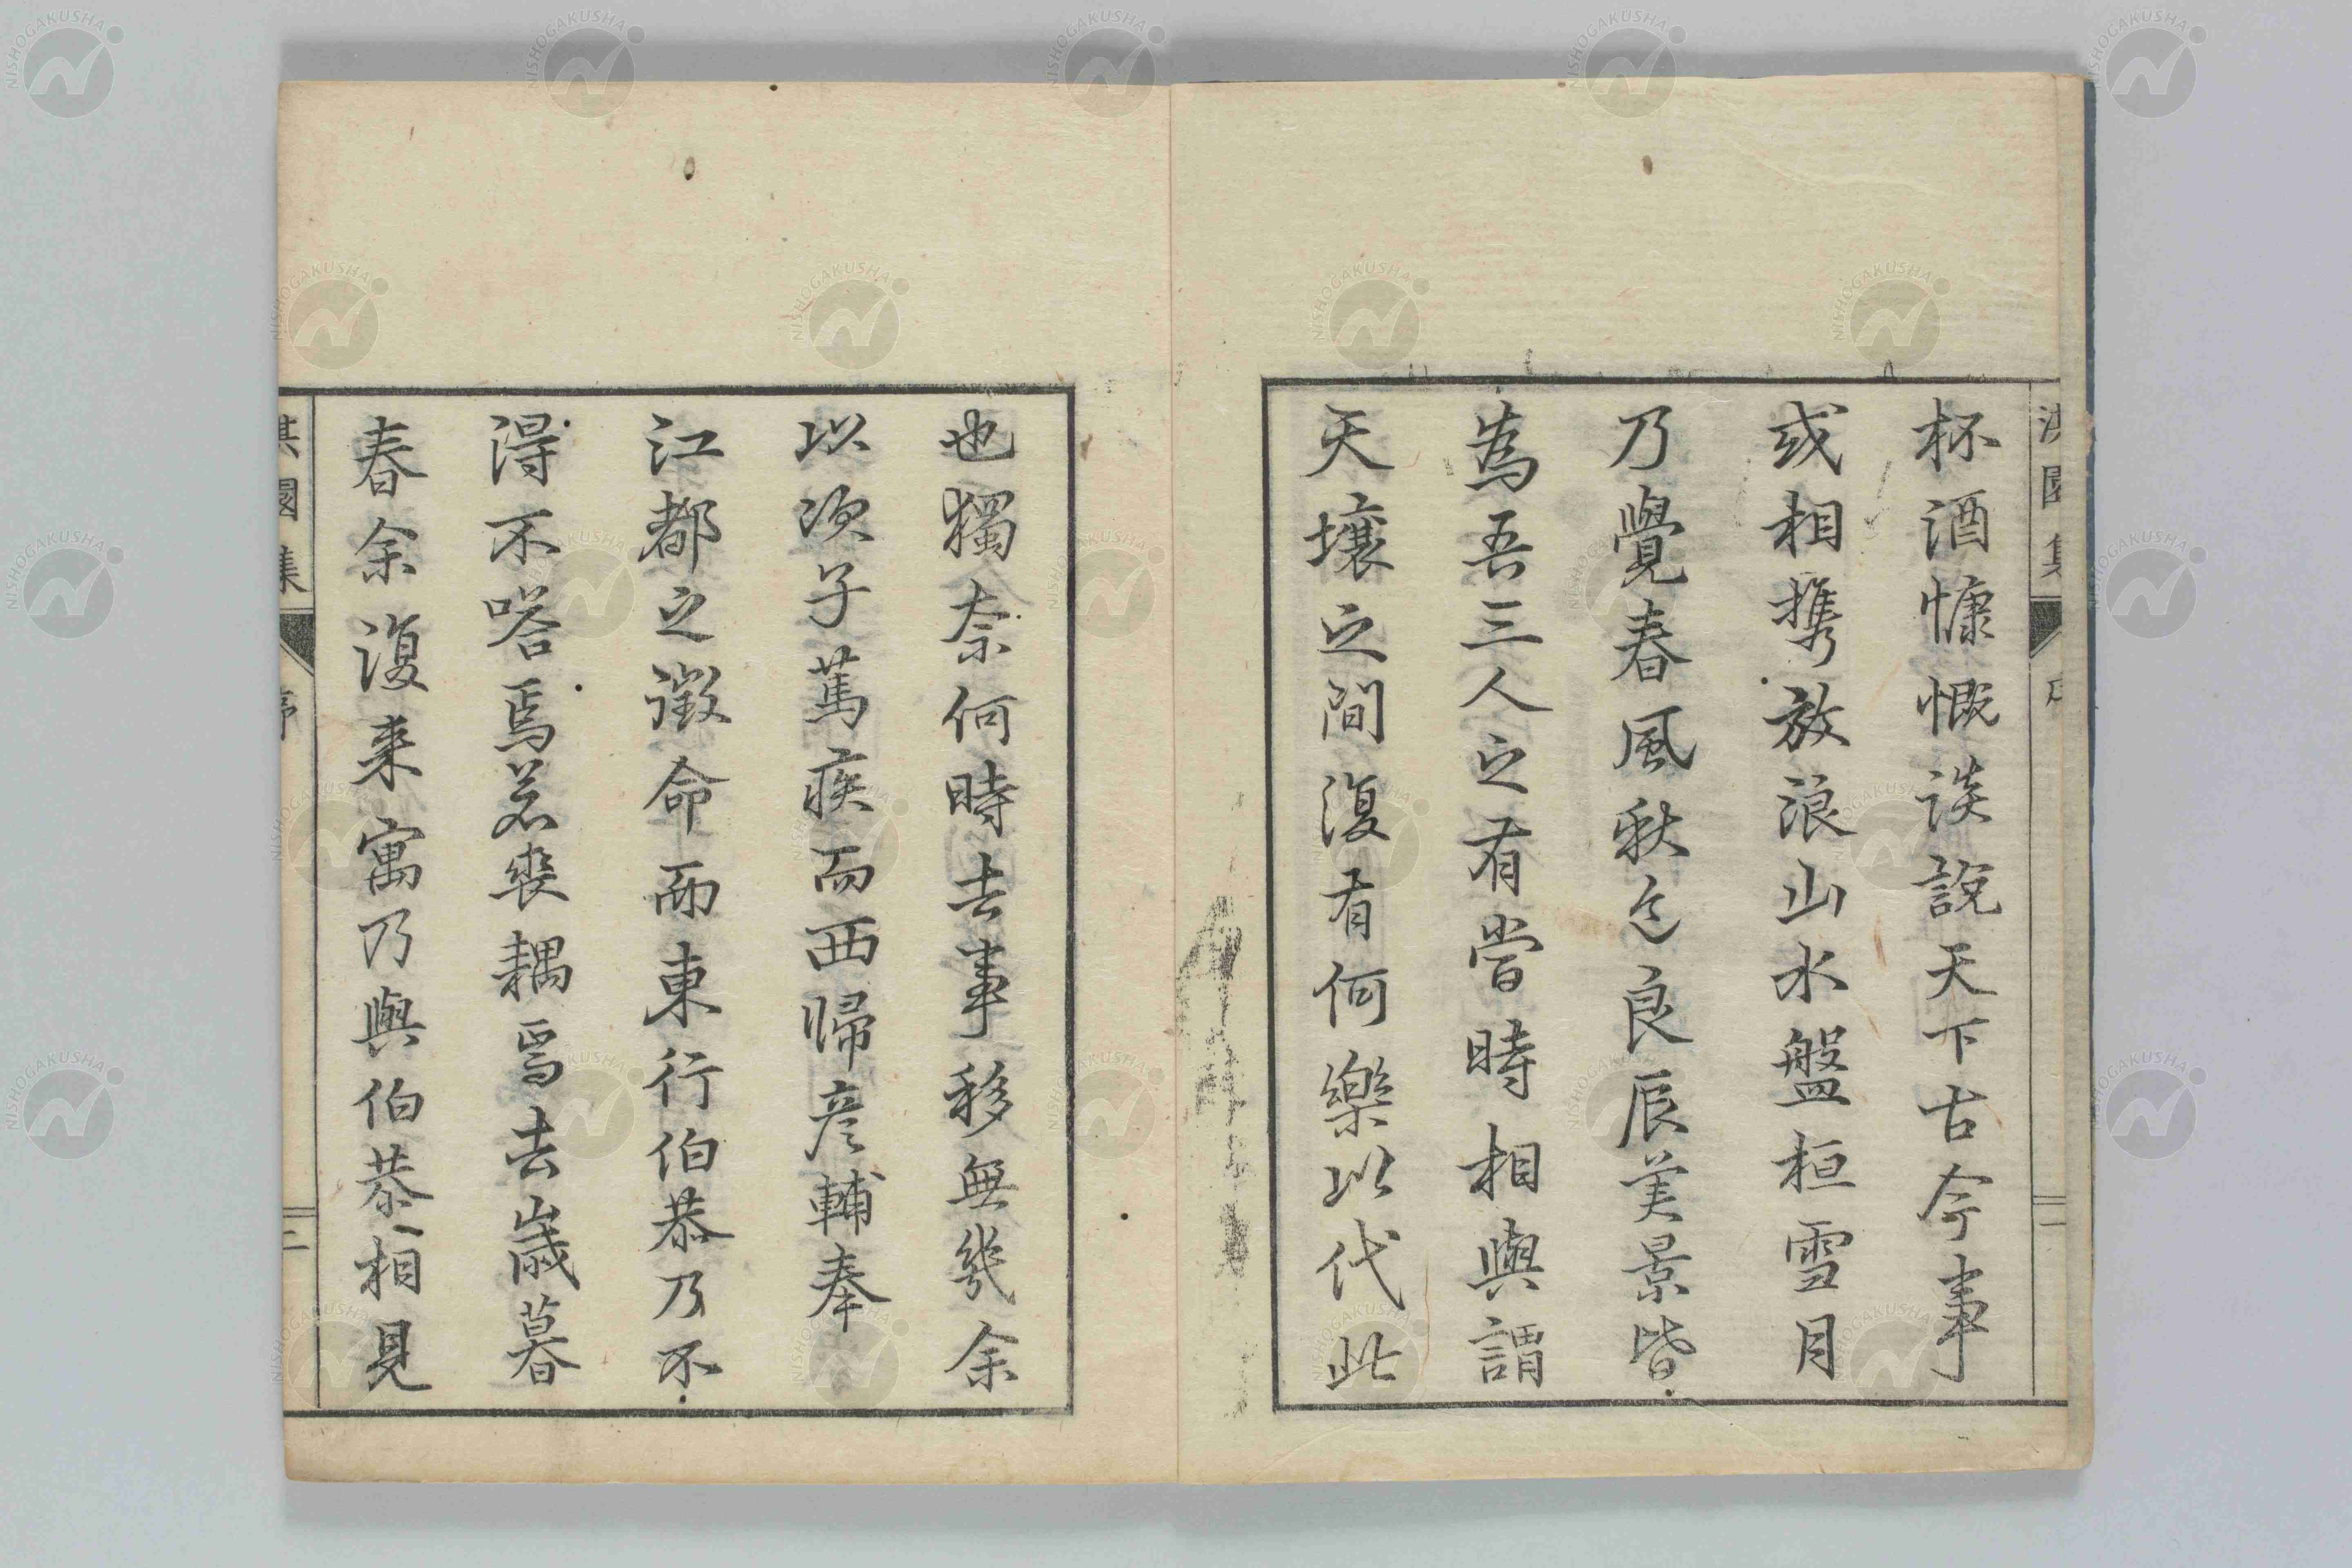 杯酒慷慨談說天下古今事
或相携放浪山水盤桓雪月
乃覺春風秋色良辰美景皆
為吾三人之有當時相與謂
天壤之間復有何樂以代此
也獨奈何時去事移無幾余
以次子篤疾而西歸彦輔奉
江都之徵命而東行伯恭乃不
得不嗒焉若喪耦焉去歲暮
春余復来寓乃與伯恭相見
淇園集
序
二
淇園集
序
三
NISHOGAKUSHA